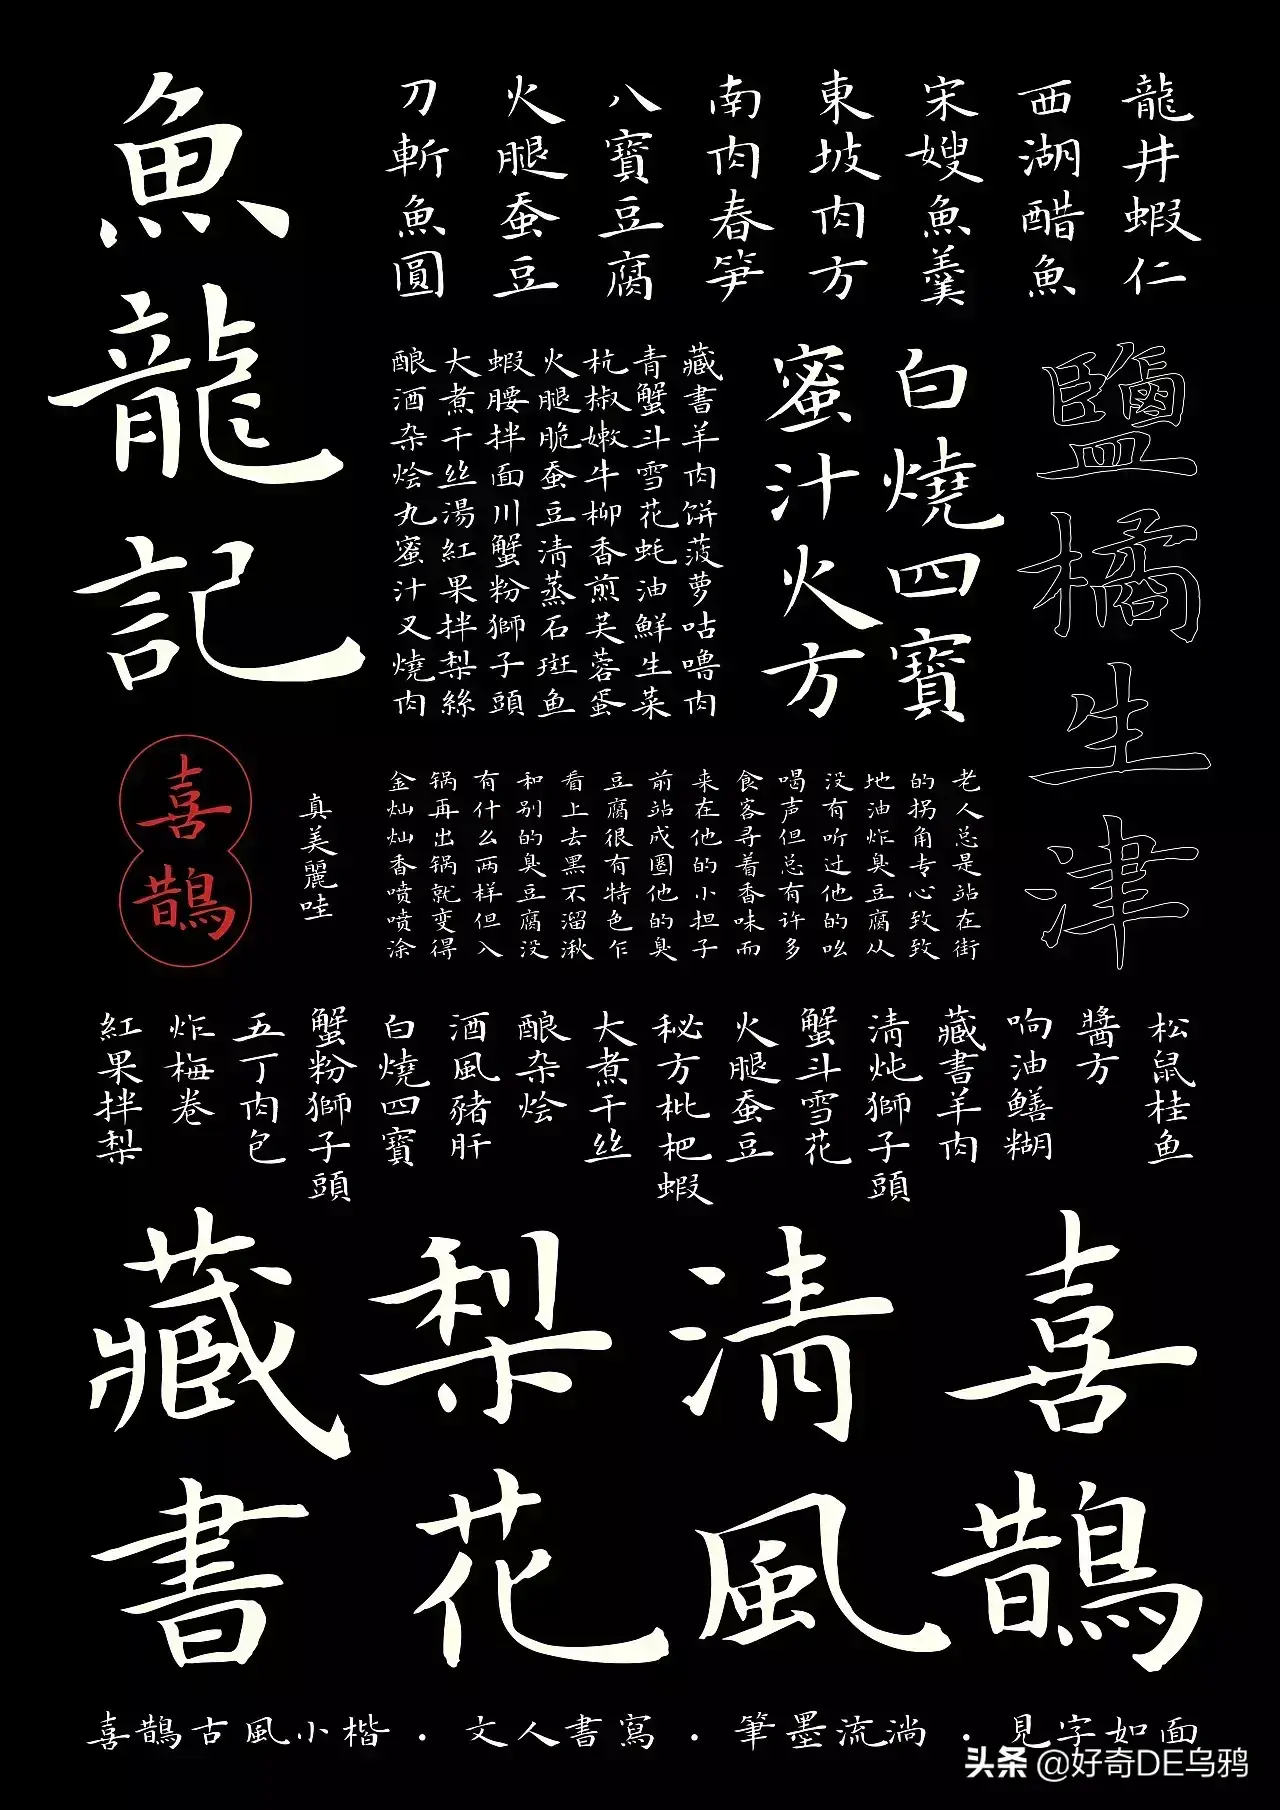 龍井蝦仁
西湖醋魚
宋嫂魚羹
東坡肉方
南肉春笋
八寶豆腐
火腿蚕豆
刀斬魚圓
魚龍記
鹽橘生津
白燒四寶
蜜汁火方
藏書羊肉饼菠萝咕噜肉
青蟹斗雪花蚝油鮮生菜
杭椒嫩牛柳香煎芙蓉蛋
火腿脆蚕豆清蒸石斑鱼
蝦腰拌面川蟹粉獅子頭
大煮干丝湯紅果拌梨絲
酿酒杂烩丸蜜汁叉燒肉
老人总是站在街
的拐角专心致致
地油炸臭豆腐从
没有听过他的吆
喝声但总有许多
食客寻着香味而
来在他的小担子
前站成圈他的臭
豆腐很有特色乍
看上去黑不溜湫
和别的臭豆腐没
有什么两样但入
锅再出锅就变得
金灿灿香喷喷涂
真美麗哇
喜鵲
松鼠桂鱼
醬方
响油鳝糊
藏書羊肉
清炖獅子頭
蟹斗雪花
火腿蚕豆
秘方枇杷蝦
大煮干丝
酿杂烩
酒風豬肝
白燒四寶
蟹粉獅子頭
五丁肉包
炸梅卷
紅果拌梨
喜鵲
清風
梨花
藏書
喜鵲古風小楷 · 文人書寫 · 筆墨流淌 · 見字如面
头条 @好奇DE乌鸦